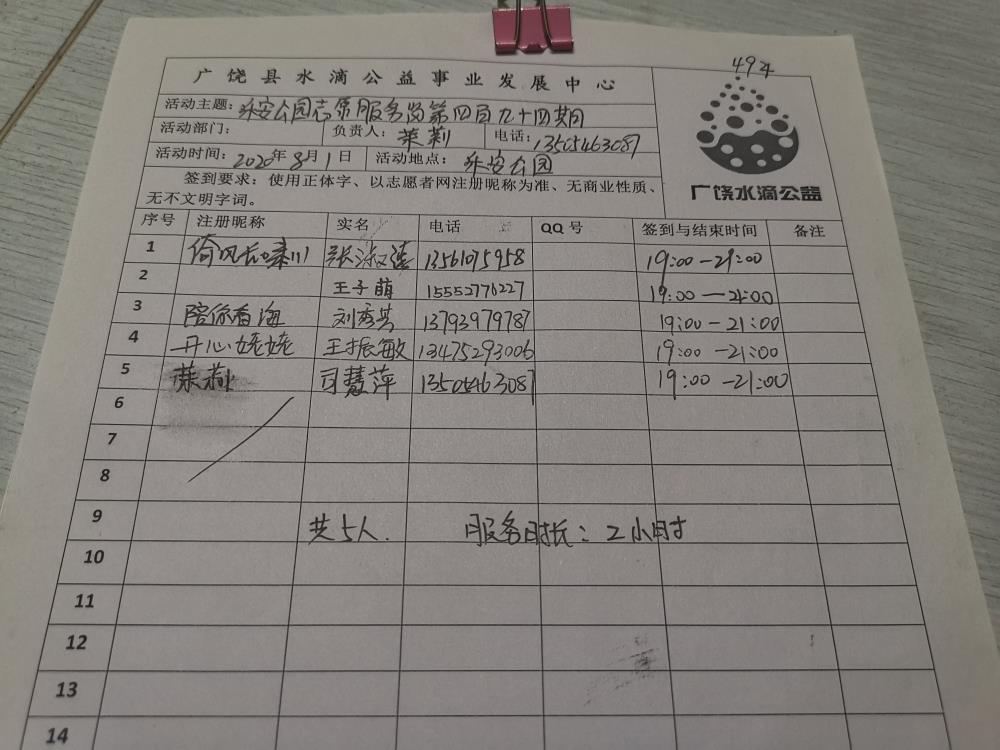 494
广饶县水滴公益事业发展中心
活动主题：乐安公园志愿服务岗第四百九十四期
活动部门： 负责人：茉莉 电话：13505463087
活动时间：2020年8月1日 活动地点：乐安公园
签到要求：使用正体字、以志愿者网注册昵称为准、无商业性质、
无不文明字词。
广饶水滴公益
序号 注册昵称 实名 电话 QQ号 签到与结束时间 备注
1 倚风长啸川 张淑莲 13561075958 19:00-21:00
2 王子萌 15552776227 19:00-21:00
3 陪你看海 刘秀芸 13793979787 19:00-21:00
4 开心姥姥 王振敏 13475293006 19:00-21:00
5 茉莉 司慧萍 13505463087 19:00-21:00
6
7
8
9 共5人. 服务时长：2小时
10
11
12
13
14